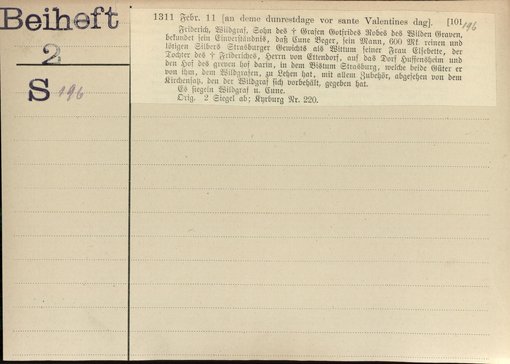 Beiheft
2
S 196
1311 Febr. 11 [an deme dunrestdage vor sante Valentines dag]. [101 196
Friderich, Wildgraf, Sohn des † Grafen Gotfrides Robes des Wilden Graven,
bekundet sein Einverständnis, daß Cune Beger, sein Mann, 600 Mk. reinen und
lötigen Silbers Strasburger Gewichts als Wittum seiner Frau Elsebette, der
Tochter des † Frideriches, Herrn von Ettendorf, auf das Dorf Huffensheim und
den Hof des greven hof darin, in dem Bistum Strasburg, welche beide Güter er
von ihm, dem Wildgrafen, zu Lehen hat, mit allem Zubehör, abgesehen von dem
Kirchensatz, den der Wildgraf sich vorbehält, gegeben hat.
Es siegeln Wildgraf u. Cune.
Orig. 2 Siegel ab; Kyrburg Nr. 220.